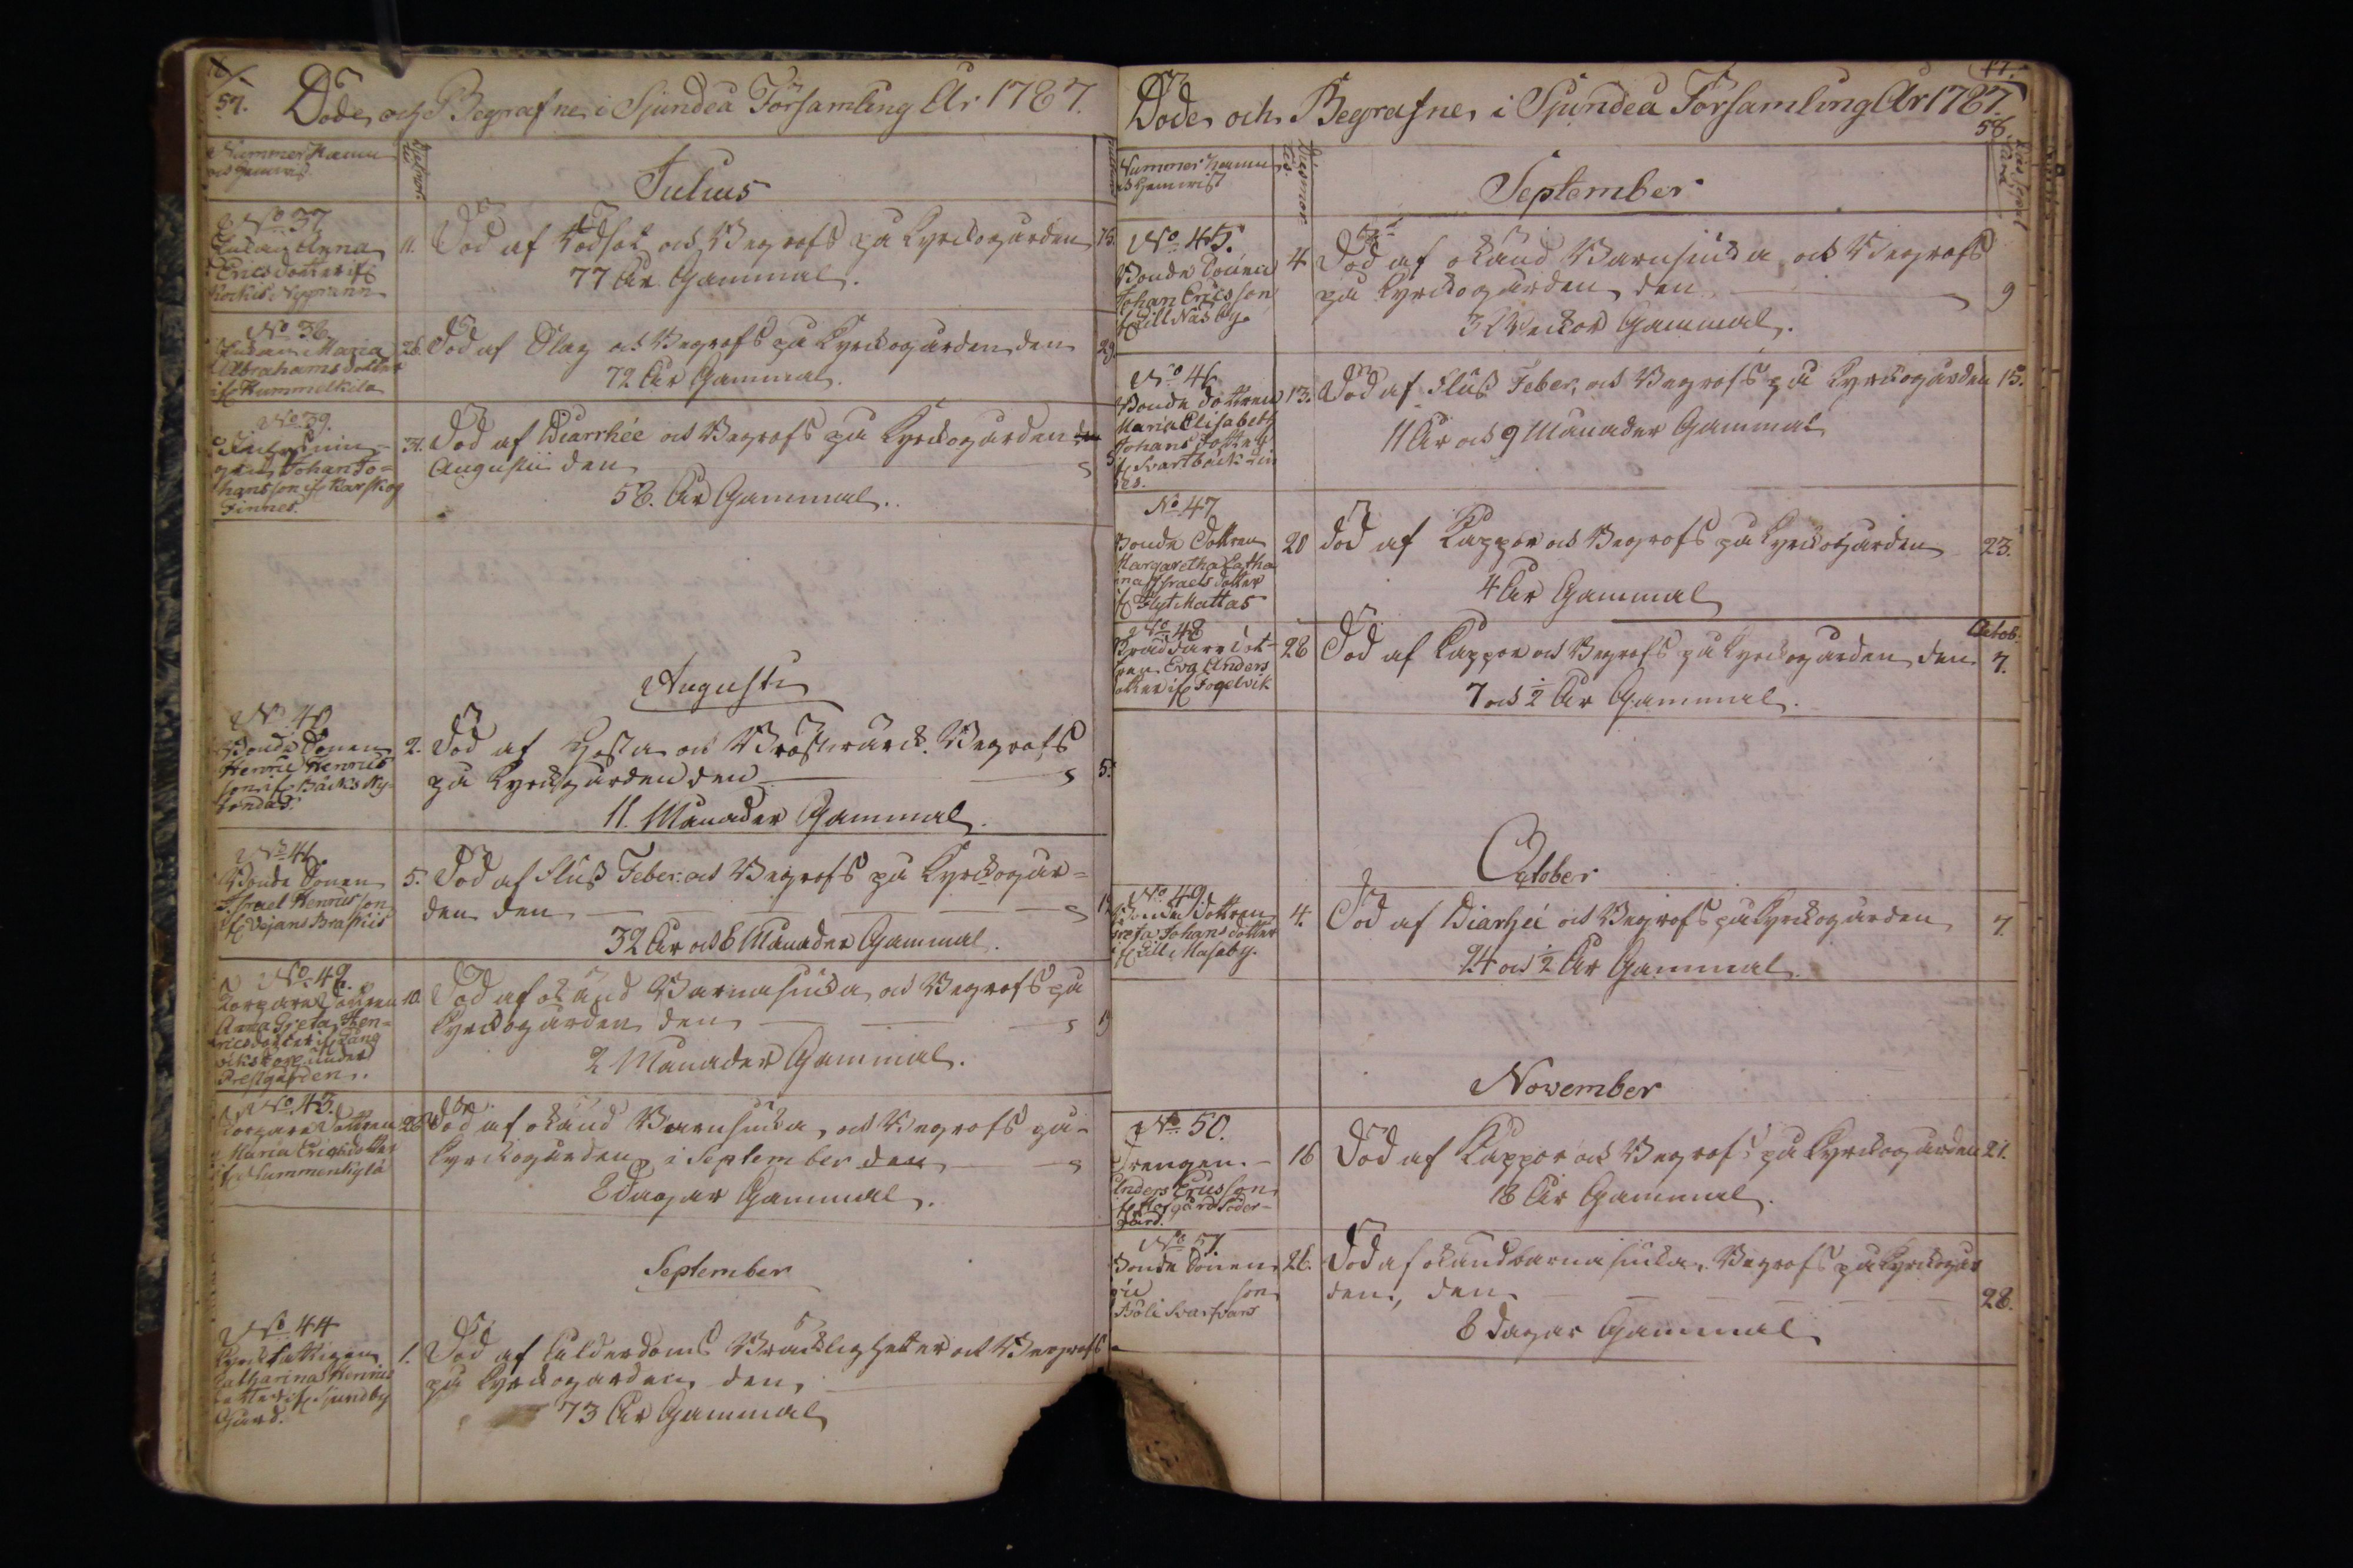 57.
Döde och Begrafne i Sjundeå Församling År 1787.
Nummer Namn
och Hemvist
Julius
No 37
Enkan Anna
Ericsdotter if
Nygrann
11. Död af Rödsot och Begrofs på Kyrkogården 15.
77 År Gammal.
No 38
Enkan Maria
Abrahams dotter
if Hummelkila
26. Död af Slag och Begrofs på Kyrkogården den 29.
72 År Gammal.
No 39.
Johan Jo=
hansson if Karskog
Finnes.
31. Död af Diarrhée och Begrofs på Kyrkogården
Augustii den 5
58. År Gammal.
Augusti
No 40
Bonde Sonen
Henric Henrics
son if Bäcks Ny-
2. Död af Hosta och Bröstwärck. Begrofs
på Kyrkogården den 5.
11. Månader Gammal.
No 41.
Bonde Sonen
Israel Henricsson
if Vejans Braskis
5. Död af Fluss Feber och Begrofs på Kyrkogår=
den den 12
32 År och 8 Månader Gammal.
No 42.
Torpare Dottren
Anna Greta Hen=
ricsdotter if Lång
vikstorp under
Prestgården.
10. Död af okänd Barnasjuka och Begrofs på
Kyrkogården den 19
2 Månader Gammal.
No 43.
Torpare Dottren
Maria Ericsdotter
if Nummenkylä
26. Död af okänd Barnsjuka, och Begrofs på
Kyrkogården i September den
8 dagar Gammal.
September
No 44
Kyrkfattigan
Catharina Henrics
dotter if Sjundby
Gård.
1. Död af Ålderdoms Bräcklighetter och Begrofs
på Kyrkogården den,
73 År Gammal
17.
Döde och Begrafne i Sjundeå Församling År 1787.
58.
Nummer Namn
och Hemvist
September
No 45.
Bonde Sonen
Johan Ericsson
if Lill Näsby.
4 Död af okänd Barnsjuka, och Begrofs
på Kyrkogården den 9
3 Weckor Gammal.
No 46
Bonde dottren
Maria Elisabeth
Johans dotter
if Svartbäck Lin
des.
13. Död af Fluss Feber, och Begrofs på Kyrkogården 15.
11 År och 9 Månader Gammal
No 47
Bonde Dottren
Margaretha Catha
rina Israels dotter
if Flyt Mattas
20 död af Koppor och Begrofs på Kyrkogården 23.
4 År Gammal
No 48
Eva Anders
dotter if Fogelvik
28 Död af Koppor och Begrofs på Kyrkogården den Octob. 7.
7 och ½ År Gammal.
October
No 49
Bonde Dottren
Greta Johans dotter
if Lill Masaby.
4. Död af Diarhei och Begrofs på Kyrkogården 7.
24 och ½ År Gammal.
November
No 50.
Drengen
Anders Ericsson
if Morgård Söder-
gård.
16 Död af Koppor och Begrofs på Kyrkogården 21.
18 År Gammal.
No 51
Bonde Sonen
son
Böli Svartvars
26. Död af okänd barnasjuka, Begrofs på Kyrkogår
den, den 28.
8 dagar Gammal